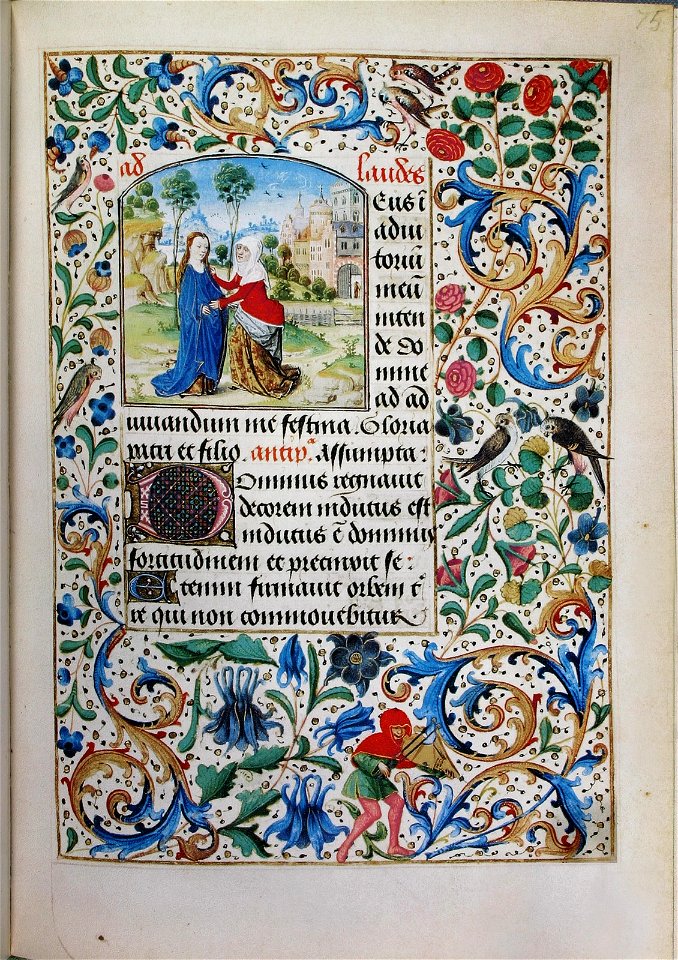 75
ad laudes
Eus ī
adiu
toriū
meū
inten
de Do
mine
ad ad
iuuandum me festina. Gloria
patri et filio. antipᵃ. Assumpta:
Dominus regnauit
decorem indutus est
indutus ē dominus
fortitudinem et precinxit se:
Etenim firmauit orbem t̄
re qui non commouebitur